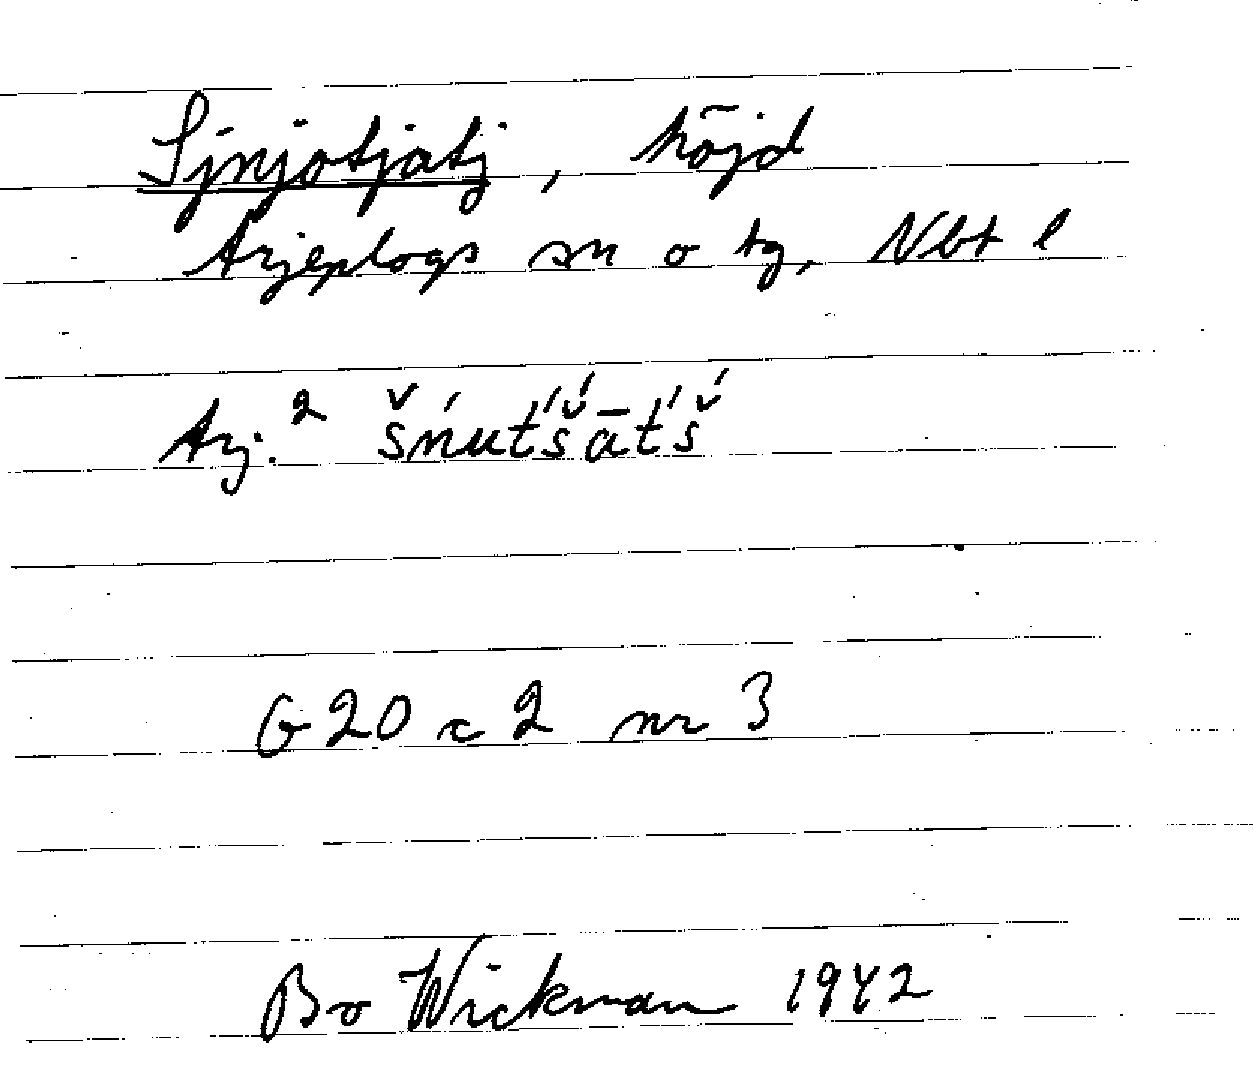 Sjnjotjatj, höjd
Arjeplogs sn o tg, Nbt l
Arj.² šńut́š́āt́š́
G 20 c 2 nr 3
Bo Wickman 1942